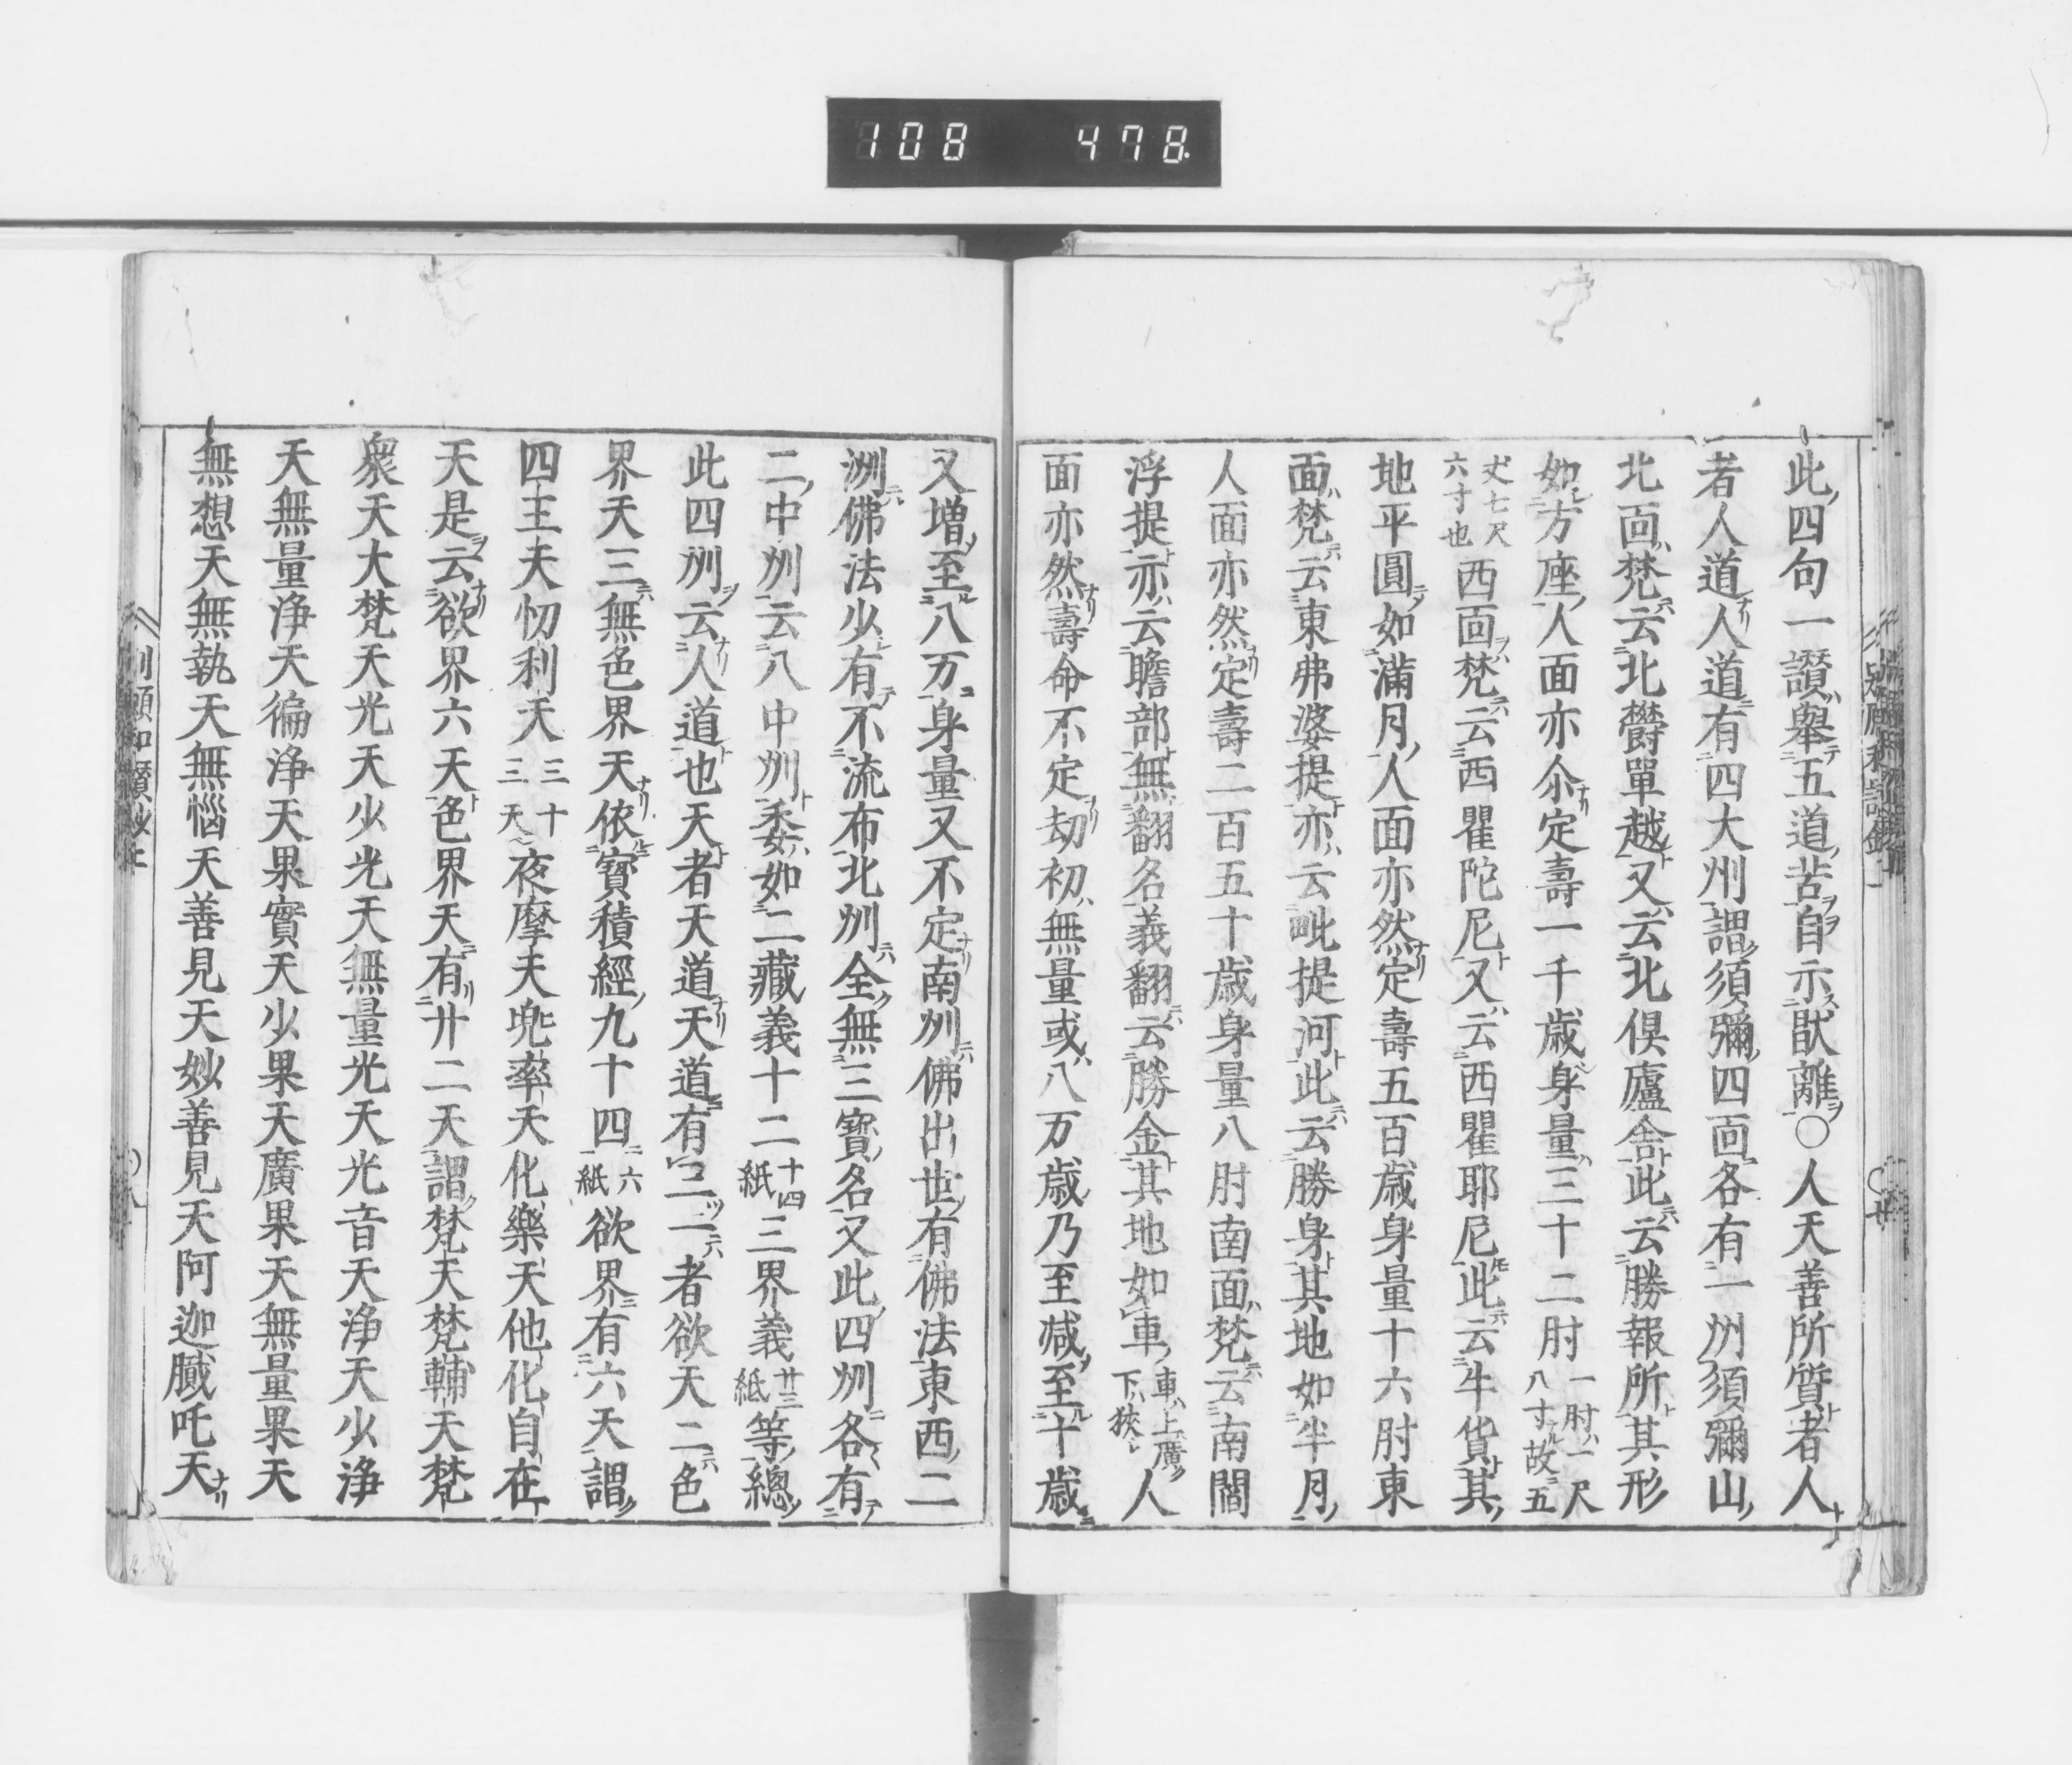 108 478
此四句一讃擧五道苦自示猒離○人天善所質者人
者人道人道有四大州謂須彌四面各有一洲須彌山
北面梵云北欝單越又云北倶廬舎此云勝報所其形
如方座人面亦尒定壽一千歳身量三十二肘一肘一尺八寸故五
丈七尺六寸也西面梵云西瞿陀尼又云西瞿耶尼此云牛貨其
地平圓如滿月人面亦然定壽五百歳身量十六肘東
面梵云東弗婆提亦云毗提河此云勝身其地如半月
人面亦然定壽二百五十歳身量八肘南面梵云南閻
浮提亦云瞻部無翻名義翻云勝金其地如車車上廣下狹人
面亦然壽命不定劫初無量或八万歳乃至减至十歳
又増至八万身量又不定南洲佛出世有佛法東西二
洲佛法少有不流布北洲全無三寳名又此四洲各有
二中洲云八中洲委如二藏義十二十四紙三界義廿三紙等總
此四洲云人道也天者天道天道有三一者欲天二色
界天三無色界天依寳積經九十四六紙欲界有六天謂
四王天忉利天三十三天夜摩天兜率天化樂天他化自在
天是云欲界六天色界天有廿二天謂梵天梵輔天梵
衆天大梵天光天少光天無量光天光音天浄天少浄
天無量浄天徧浄天果實天少果天廣果天無量果天
無想天無執天無惱天善見天妙善見天阿迦膩吒天